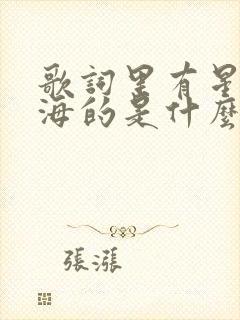 歌詞里有星
海的是什麼
張漲